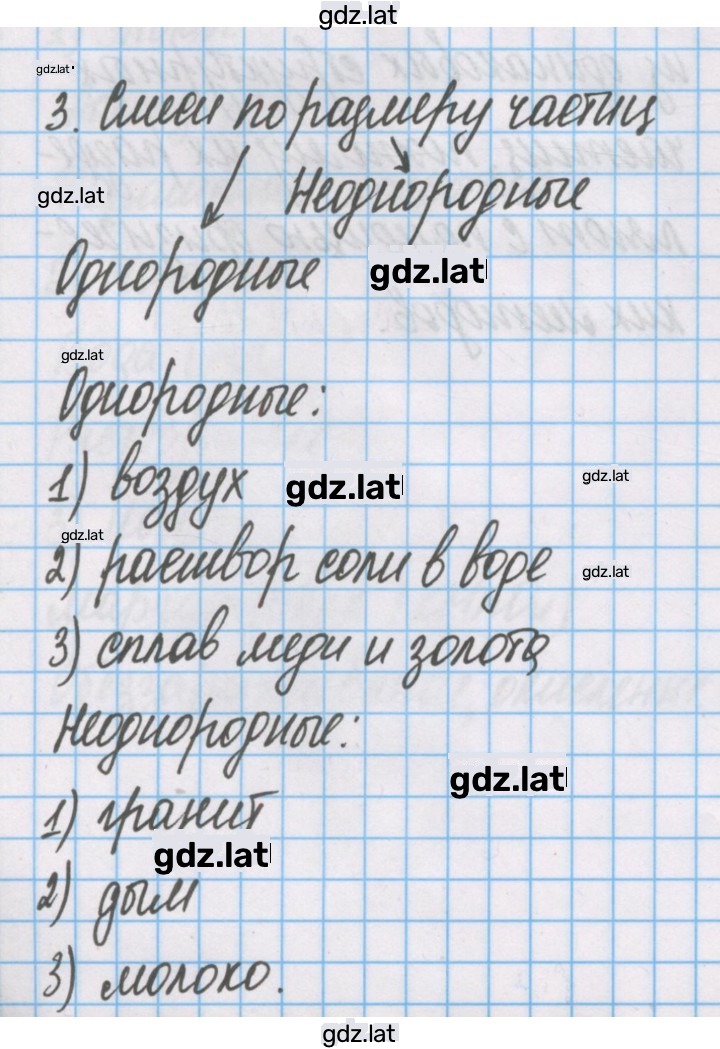 gdz.lat
gdz.lat
3. Смеси по размеру частиц
gdz.lat
Неоднородные
Однородные
gdz.lat
gdz.lat
Однородные:
1) воздух
gdz.lat
gdz.lat
gdz.lat
2) раствор соли в воде
gdz.lat
3) сплав меди и золота
Неоднородные:
gdz.lat
1) гранит
gdz.lat
2) дым
3) молоко.
gdz.lat